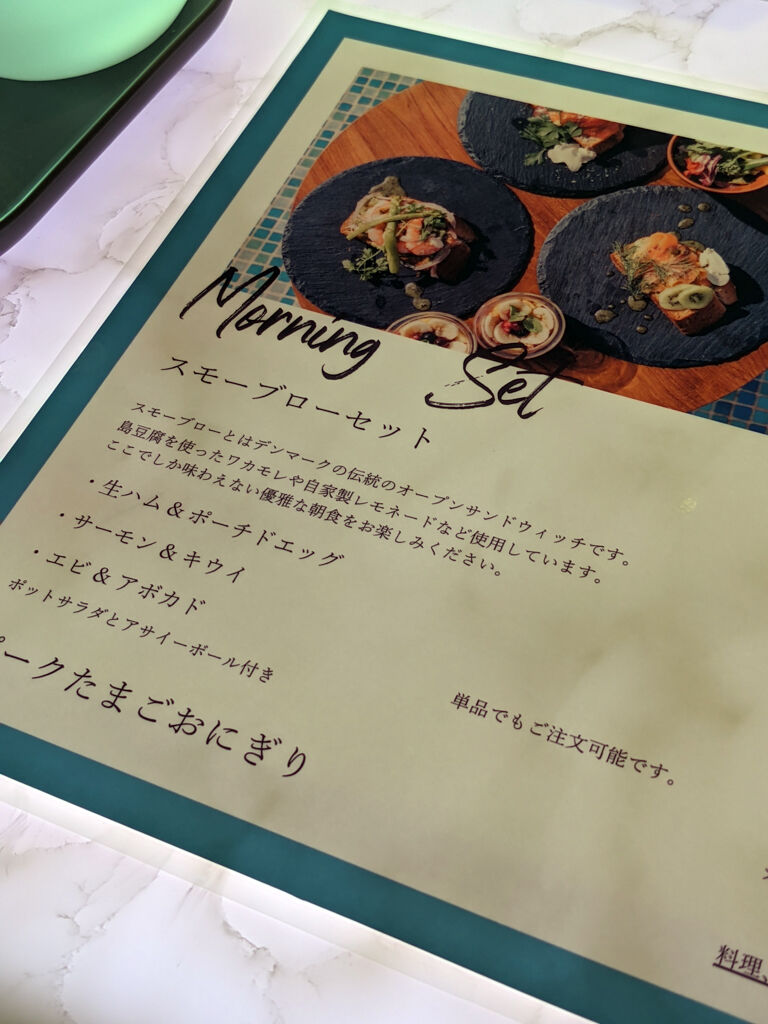 Morning Set
スモーブローセット
スモーブローとはデンマークの伝統のオープンサンドウィッチです。
島豆腐を使ったワカモレや自家製レモネードなど使用しています。
ここでしか味わえない優雅な朝食をお楽しみください。
・生ハム＆ポーチドエッグ
・サーモン＆キウイ
・エビ＆アボカド
ポットサラダとアサイーボール付き
ークたまごおにぎり
単品でもご注文可能です。
料理、